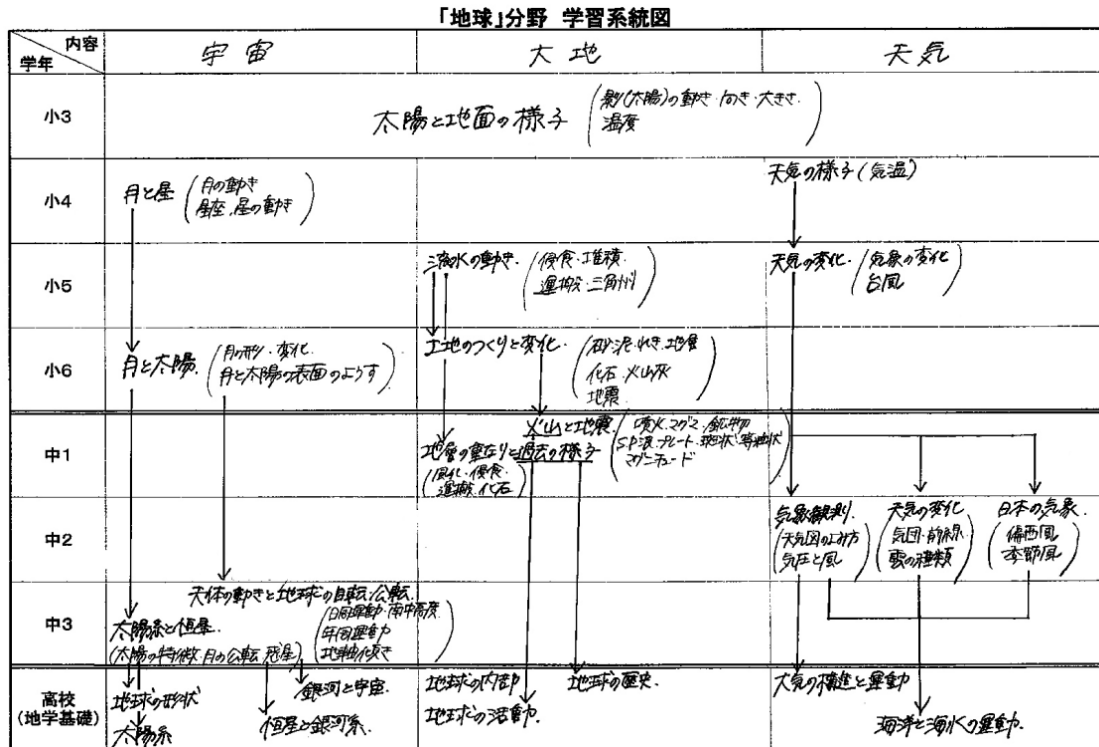 「地球」分野 学習系統図
内容
学年
宇宙
大地
天気
小3
太陽と地面の様子
影(太陽)の動き・向き・大きさ
温度
小4
月と星
月の動き
星座、星の動き
天気の様子(気温)
小5
流水の動き
侵食・堆積
運搬・三角州
天気の変化
気象の変化
台風
小6
月と太陽
月の形・変化
月と太陽の表面のようす
土地のつくりと変化
砂・泥・れき・地層
化石・火山灰
地震
中1
火山と地震
噴火・マグマ・鉱物
SP波・プレート
マグニチュード
地層の重なりと過去の様子
風化・侵食
運搬・化石
中2
気象観測
天気図のよみ方
気圧と風
天気の変化
気団・前線
雲の種類
日本の気象
偏西風
季節風
中3
天体の動きと地球の自転・公転
日周運動・南中高度
年周運動
地軸傾き
太陽系と恒星
(太陽の特徴・月の公転 惑星)
高校
(地学基礎)
地球の形状
太陽系
銀河と宇宙
恒星と銀河系
地球の内部
地球の活動
地球の歴史
大気の構造と運動
海洋と海水の運動